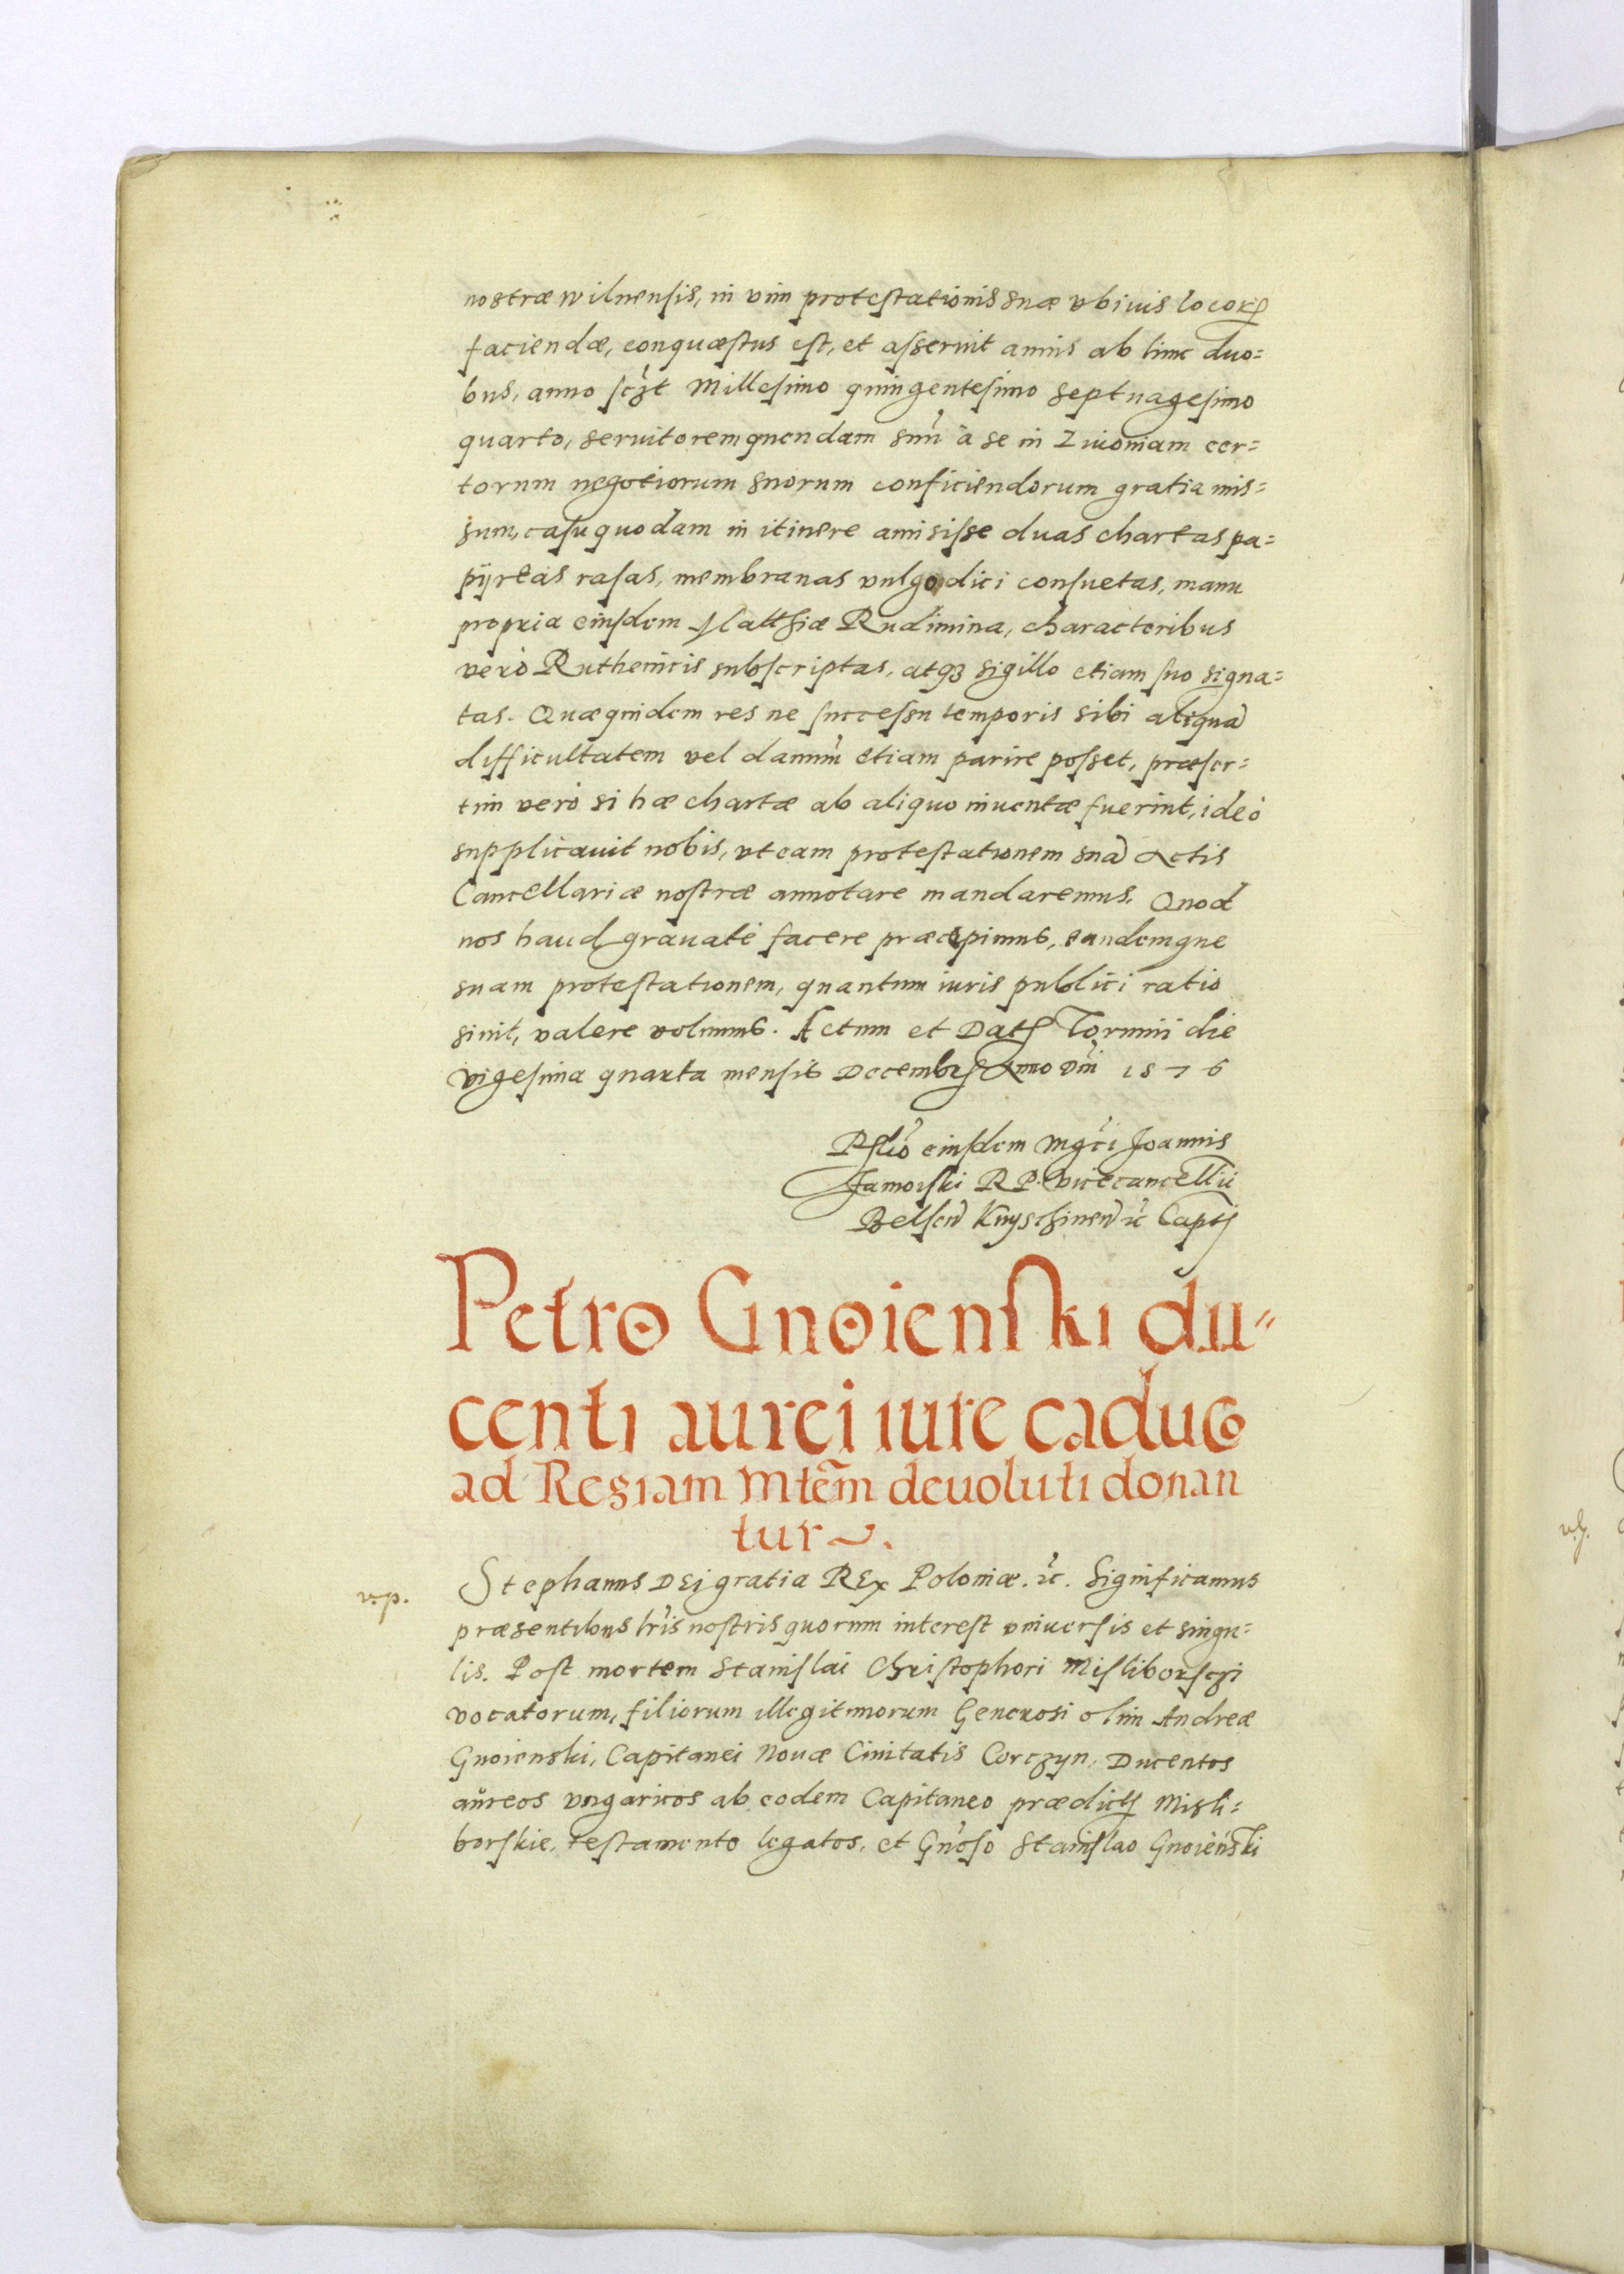 nostræ wilnensis, in vim protestationis suæ vbiuis locorꝝ
faciendæ, conquæstus est, et asseruit annis ab hinc duo=
bus, anno scʒt Millesimo quingentesimo septuagesimo
quarto, seruitorem quendam suũ à se in Liuoniam cer=
torum negotiorum suorum conficiendorum gratia mis=
sum, casu quodam in itinere amisisse duas chartas pa=
pyreas rasas, membranas vulgo dici consuetas, manu
propria eiusdem Matthiæ Rudimina, characteribus
verò Ruthenicis subscriptas, atqʒ sigillo etiam suo signa=
tas. Quæquidem res ne successu temporis sibi aliquã
difficultatem vel damnũ etiam parire posset, præser=
tim verò si hæ chartæ ab aliquo inuentæ fuerint, ideò
supplicauit nobis, vt eam protestationem suã Actis
Cancellariæ nostræ annotare mandaremus. Quod
nos haud grauatè facere præcepimus, eandemque
suam protestationem, quantum iuris publici ratio
sinit, valere volumus. Actum et Datꝭ Torunii die
vigesima quarta mensis Decembrꝭ Anno dñi 1576
Rslio eiusdem Mgci Joannis
Zamoiski R P. vicecancellii
Belsceñ Knyschineñ ꝛc Captꝭ
Petro Gnoienski du=
centi aurei iure caduco
ad Regiam Mtẽm deuoluti donan
tur.
v.p.
Stephanus DEj gratia REx Poloniæ. ꝛc. Significamus
præsentibus lr̃is nostris quorum interest vniuersis et singu=
lis. Post mortem Stanislai Christophori Misliborsczi
vocatorum, filiorum illegitimorum Generosi olim Andreæ
Gnoienski, Capitanei Nouæ Ciuitatis Corczyn, Ducentos
aureos vngaricos ab eodem Capitaneo prædictꝭ Misli=
borskie, testamento legatos, et Gñoso Stanislao Gnoieński